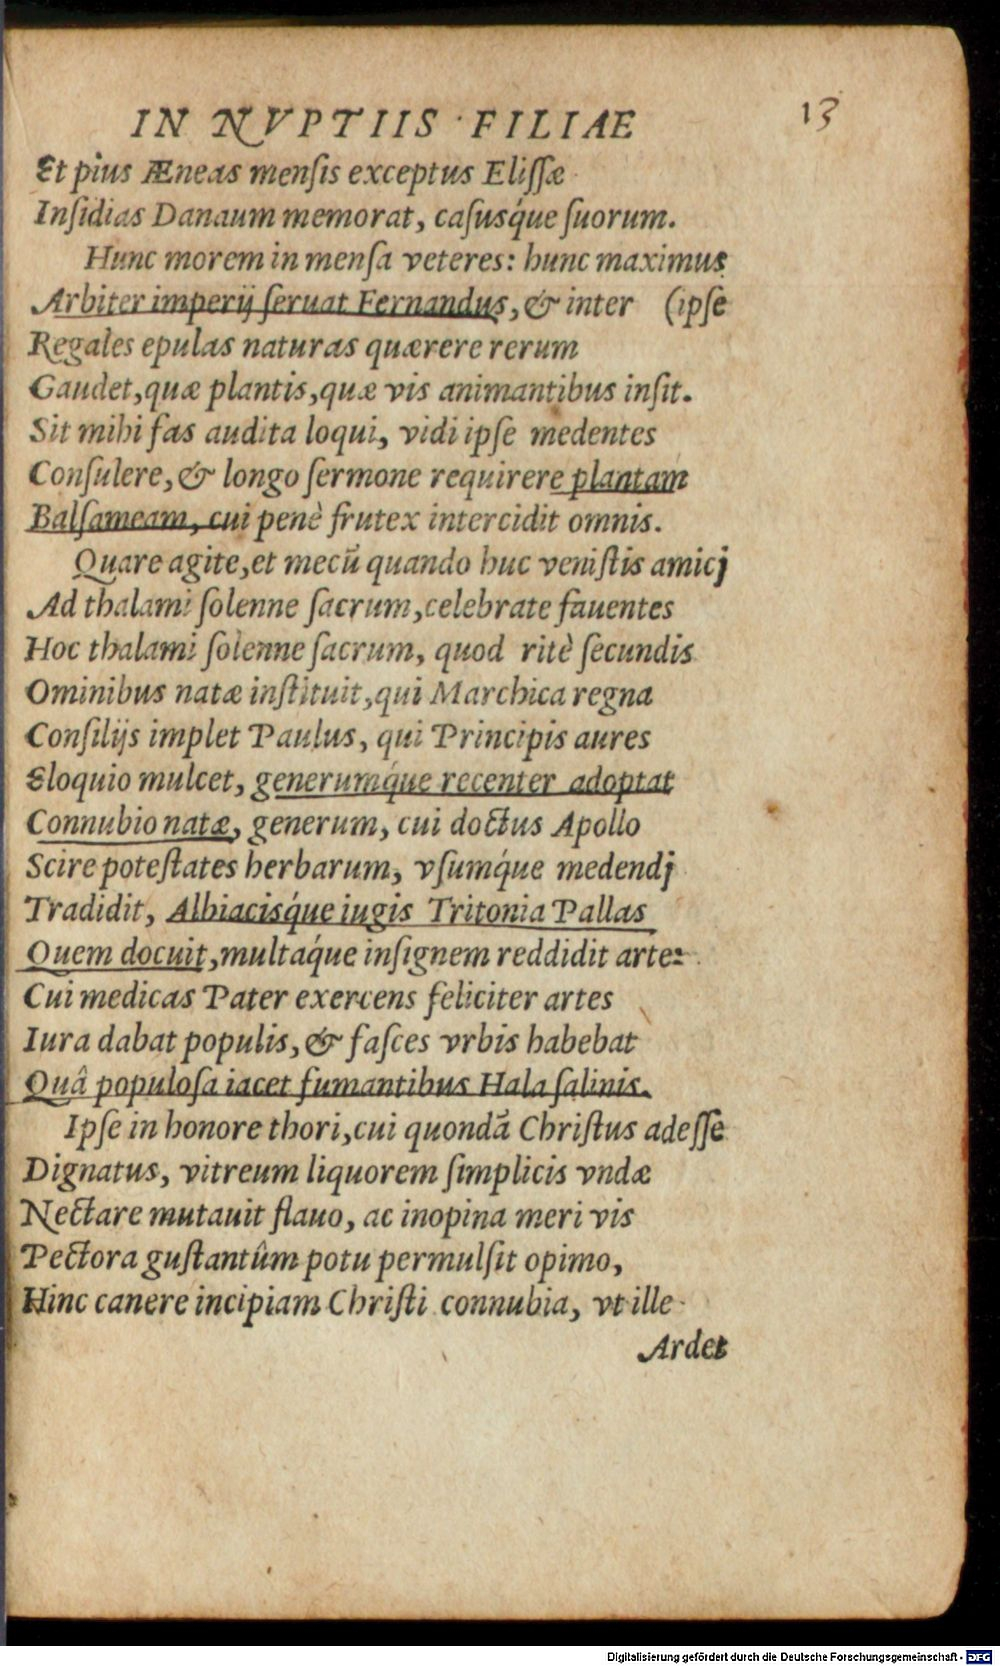 IN NVPTIIS FILIAE 13
Et pius Æneas mensis exceptus Elissæ
Insidias Danaum memorat, casusq́ue suorum.
Hunc morem in mensa veteres: hunc maximus
Arbiter imperij seruat Fernandus, & inter (ipse
Regales epulas naturas quærere rerum
Gaudet, quæ plantis, quæ vis animantibus insit.
Sit mihi fas audita loqui, vidi ipse medentes
Consulere, & longo sermone requirere plantam
Balsameam, cui penè frutex intercidit omnis.
Quare agite, et mecū quando huc venistis amicj
Ad thalami solenne sacrum, celebrate fauentes
Hoc thalami solenne sacrum, quod ritè secundis
Ominibus natæ instituit, qui Marchica regna
Consilijs implet Paulus, qui Principis aures
Eloquio mulcet, generumq́ue recenter adoptat
Connubio natæ, generum, cui doctus Apollo
Scire potestates herbarum, vsumq́ue medendj
Tradidit, Albiacisq́ue iugis Tritonia Pallas
Quem docuit, multaq́ue insignem reddidit arte:
Cui medicas Pater exercens feliciter artes
Iura dabat populis, & fasces vrbis habebat
Quâ populosa iacet fumantibus Hala salinis.
Ipse in honore thori, cui quondā Christus adesse
Dignatus, vitreum liquorem simplicis vndæ
Nectare mutauit flauo, ac inopina meri vis
Pectora gustantûm potu permulsit opimo,
Hinc canere incipiam Christi connubia, vt ille
Ardet
Digitalisierung gefördert durch die Deutsche Forschungsgemeinschaft - DFG